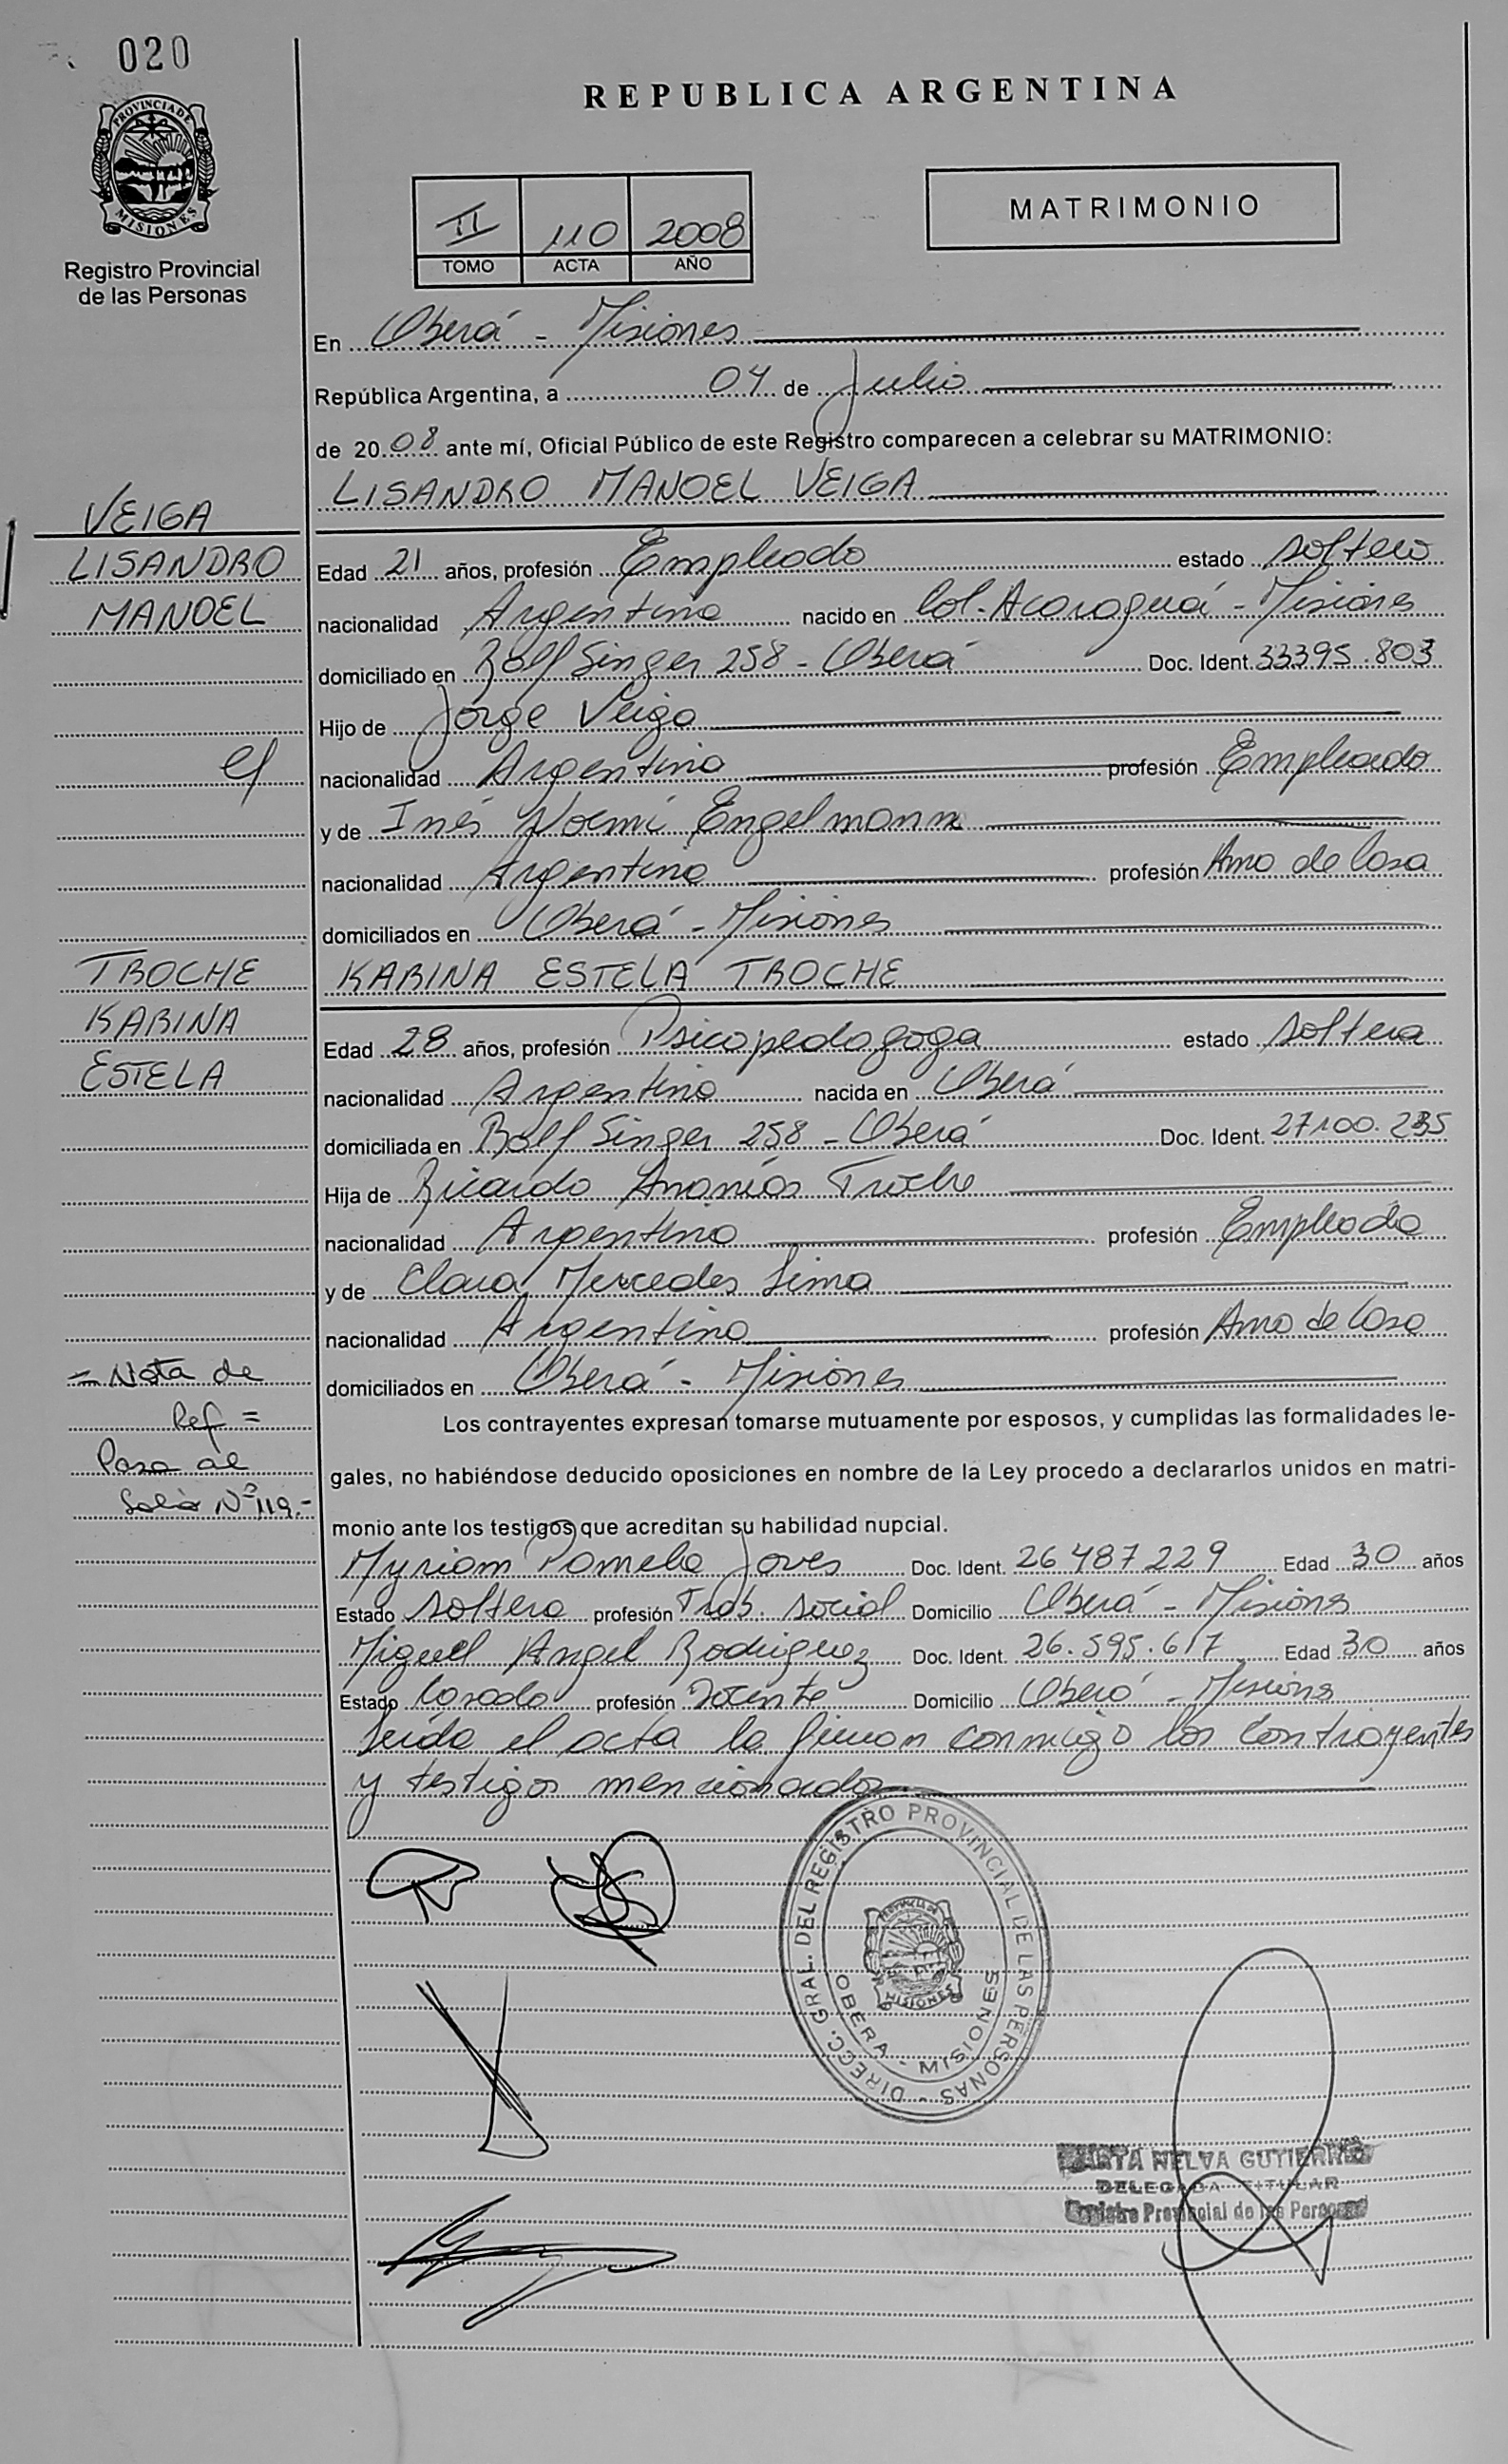 020
PROVINCIA DE
MISIONES
Registro Provincial
de las Personas
REPUBLICA ARGENTINA
II 110 2008
TOMO ACTA AÑO
MATRIMONIO
En Oberá - Misiones
República Argentina, a 04 de Julio
de 2008 ante mí, Oficial Público de este Registro comparecen a celebrar su MATRIMONIO:
LISANDRO MANOEL VEIGA
VEIGA
LISANDRO
MANOEL
Edad 21 años, profesión Empleado estado soltero
nacionalidad Argentina nacido en Col. Acaraguá - Misiones
domiciliado en Rolf Singer 258 - Oberá Doc. Ident. 33395.803
Hijo de Jorge Veiga
c/
nacionalidad Argentina profesión Empleado
y de Inés Noemí Engelmann
nacionalidad Argentina profesión Ama de Casa
domiciliados en Oberá - Misiones
TROCHE
KARINA
ESTELA
KARINA ESTELA TROCHE
Edad 28 años, profesión Psicopedagoga estado soltera
nacionalidad Argentina nacida en Oberá
domiciliada en Rolf Singer 258 - Oberá Doc. Ident. 27100.235
Hija de Ricardo Ananías Troche
nacionalidad Argentina profesión Empleado
y de Clara Mercedes Lima
nacionalidad Argentina profesión Ama de Casa
domiciliados en Oberá - Misiones
= Nota de
Ref =
Pasa al
folio Nº 119.-
Los contrayentes expresan tomarse mutuamente por esposos, y cumplidas las formalidades le-
gales, no habiéndose deducido oposiciones en nombre de la Ley procedo a declararlos unidos en matri-
monio ante los testigos que acreditan su habilidad nupcial.
Myriam Pamela Joves Doc. Ident. 26487229 Edad 30 años
Estado soltera profesión Trab. Social Domicilio Oberá - Misiones
Miguel Angel Rodriguez Doc. Ident. 26.595.617 Edad 30 años
Estado Casado profesión Docente Domicilio Oberá - Misiones
Leída el acta la firman conmigo los contrayentes
y testigos mencionados
DIRECC. GRAL. DEL REGISTRO PROVINCIAL DE LAS PERSONAS
OBERA - MISIONES
PROVINCIA DE
MISIONES
MARTA NELVA GUTIERREZ
DELEGADA TITULAR
Registro Provincial de las Personas